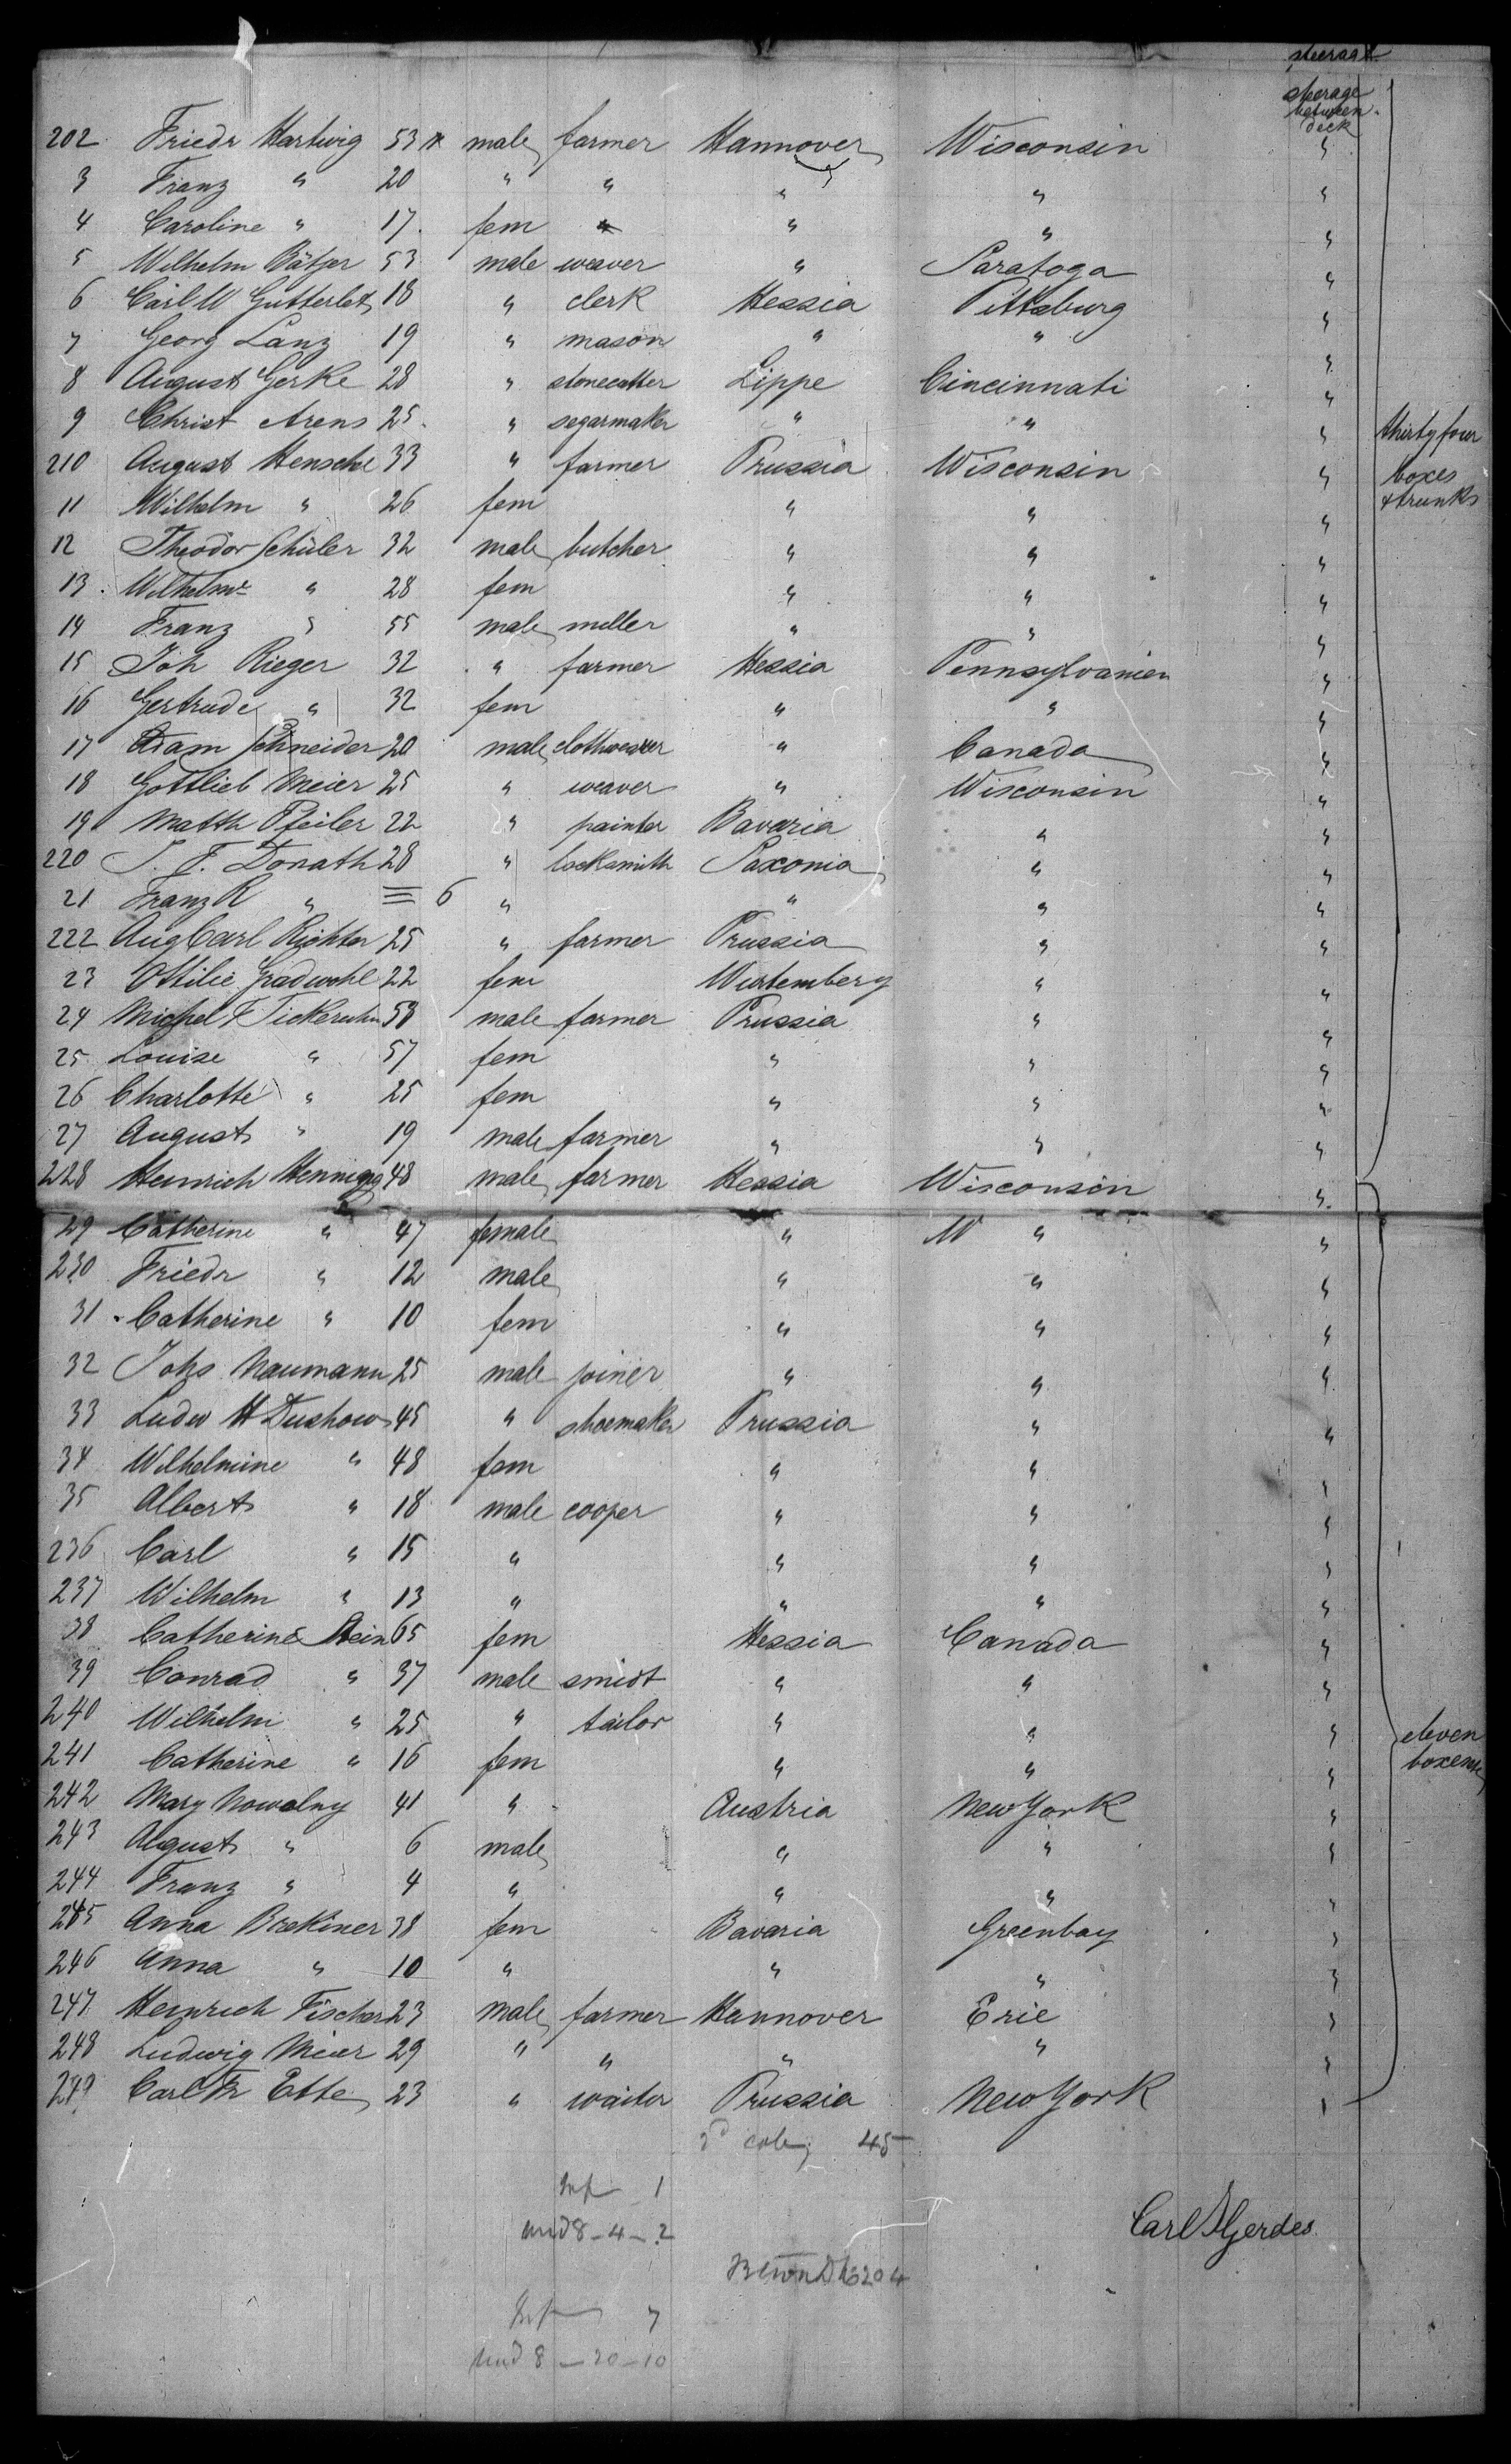 steerage
steerage between deck
202 Friedr Hartwig 53 male farmer Hannover Wisconsin "
3 Franz " 20 " " " " "
4 Caroline " 17. fem " " "
5 Wilhelm Bätjer 53 male weaver " Saratoga "
6 Carl W Gutterlet 18 " clerk Hessia Pittsburg "
7 Georg Lanz 19 " mason " " "
8 August Gerke 28 " stonecutter Lippe Cincinnati "
9 Christ Arens 25. " segarmaker " " " thirtyfour
210 August Hensche 33 " farmer Prussia Wisconsin " boxes
11 Wilhelm " 26 fem " " " & trunks
12 Theodor Schüler 32 male butcher " " "
13 Wilhelme " 28 fem " " "
14 Franz " 55 male miller " " "
15 Joh Rieger 32 " farmer Hessia Pennsylvanien "
16 Gertrude " 32 fem " " "
17 Adam Schneider 20 male clothweaver " Canada "
18 Gottlieb Meier 25 " weaver " Wisconsin "
19 Matth Pfeiler 22 " painter Bavaria " "
220 J. F. Donath 28 " locksmith Saxonia " "
21 Franz R " = 6 " " " "
222 Aug Carl Richter 25 " farmer Prussia " "
23 Ottilie Gradwohl 22 fem Wurtemberg " "
24 Michel F 58 male farmer Prussia " "
25 Louise " 57 fem " " "
26 Charlotte " 25 fem " " "
27 August " 19 male farmer " " "
228 Heinrich Hennig 48 male farmer Hessia Wisconsin "
29 Catherine " 47 female " W " "
230 Friedr " 12 male " " "
31 Catherine " 10 fem " " "
32 Johs Naumann 25 male joiner " " "
33 Ludw H Dushow 45 " shoemaker Prussia " "
34 Wilhelmine " 48 fem " " "
35 Albert " 18 male cooper " " "
236 Carl " 15 " " " "
237 Wilhelm " 13 " " " "
38 Catherine Stein 65 fem Hessia Canada "
39 Conrad " 37 male smidt " " "
240 Wilhelm " 25 " tailor " " " eleven
241 Catherine " 16 fem " " " boxes
242 Mary Nowalny 41 " Austria New York "
243 August " 6 male " " "
244 Franz " 4 " " " "
245 Anna 38 fem Bavaria Greenbay "
246 Anna " 10 " " " "
247 Heinrich Fischer 23 male farmer Hannover Erie "
248 Ludwig Meier 29 " " " " "
249 Carl Fr Ette 23 " waiter Prussia New York "
2d cab 45
Inf 1
und 8 - 4 - 2
Carl Gerdes
Betwn Dk 204
Inf 7
und 8 - 20 - 10